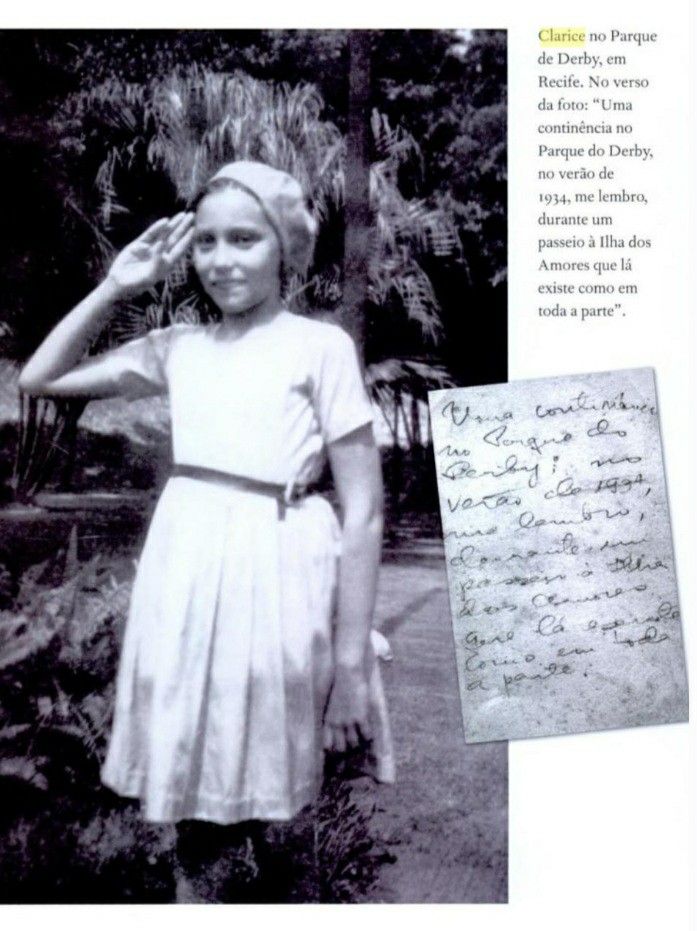 Clarice no Parque
de Derby, em
Recife. No verso
da foto: “Uma
continência no
Parque do Derby,
no verão de
1934, me lembro,
durante um
passeio à Ilha dos
Amores que lá
existe como em
toda a parte”.
Uma continência
no Parque do
Derby; no
verão de 1934,
me lembro,
durante um
passeio à Ilha
dos Amores
que lá existe
como em toda
a parte.